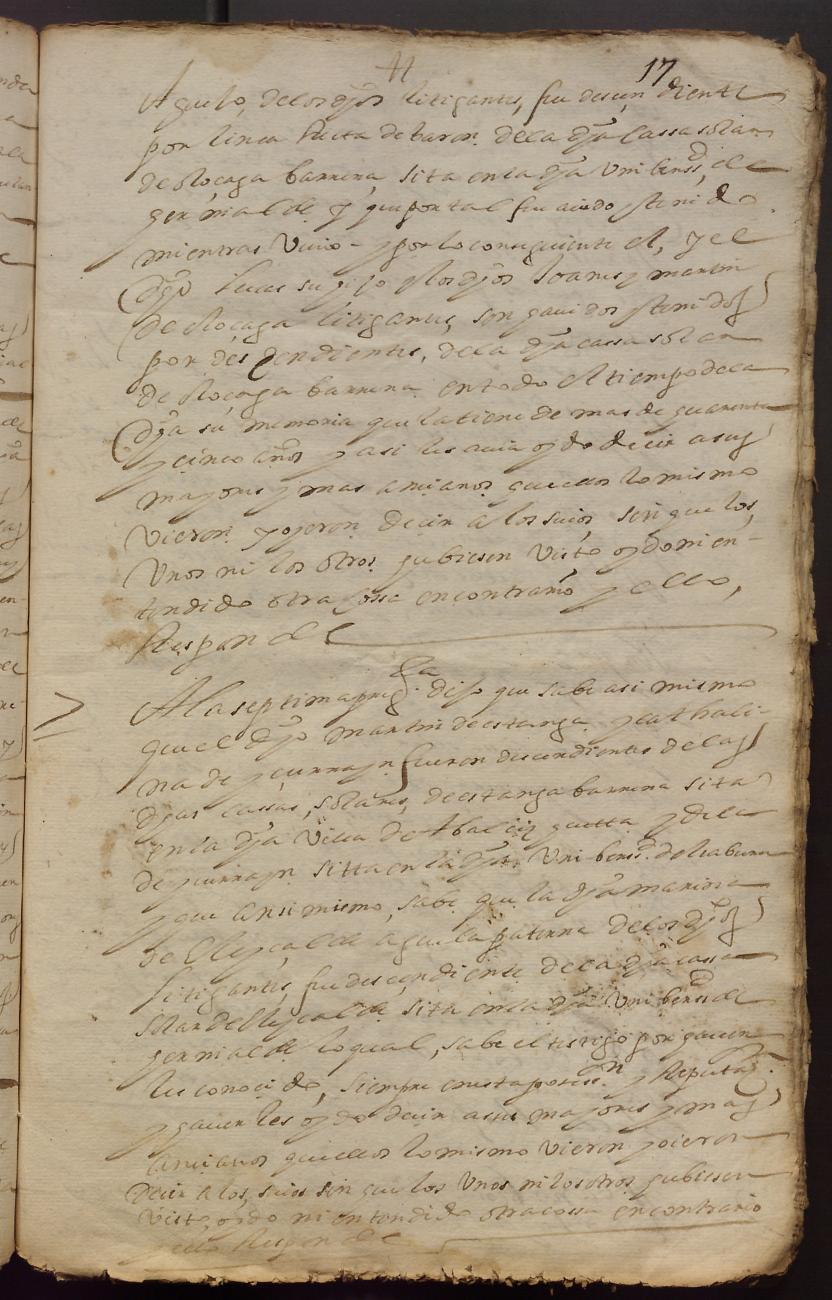 17
Aguelo, de los dhos litigantes, fue decendiente
por linea Recta de baron de la dha cassa solar
de Rocaga barrena sita en la dha Unibersd de
germialde y que por tal fue auido y tenido
mientras Vivio - y por lo consiguiente el, y el
dho Lucas su yjo y los dhos Joanes y martin
de Rocaga litigantes, son hauidos y tenidos
por desçendientes, de la dha cassa solar
de Rocaga barrena en todo el tiempo de la
dha su memoria que la tiene de mas de quarenta
y cinco años y asi les auia oydo decir a sus
mayores y mas ançianos que ellos lo mismo
vieron y oyeron decir a los suios sin que los
Unos ni los otros hubiesen visto oydo ni en-
tendido otra cossa en contrario y ello,
Responde
7 A la septima pregta dijo que sabe asi mismo
que el dho martin de estanga y cathali-
na de yçurrayn fueron descendientes de las
dhas cassas, solares, de estanga barrena sita
en la dha Villa de Abalçizqueta y de la
de yçurrayn sitta en la dha Unibersd de
y que ansi mismo, sabe que la dha
de Olyçalde aguela paterna de los dhos
litigantes, fue desçendiente de la dha cassa
solar de Olyçalde sita en la dha Unibersd de
germialde lo qual, sabe el testigo por hauer
les conocido, siempre en esta posesion y Reputaçon
y hauerles oydo decir a sus mayores y mas
ancianos que ellos lo mismo vieron y oieron
decir a los, suios sin que los Unos ni los otros hubiesen
visto oydo ni entendido otra cossa en contrario
y ello Responde